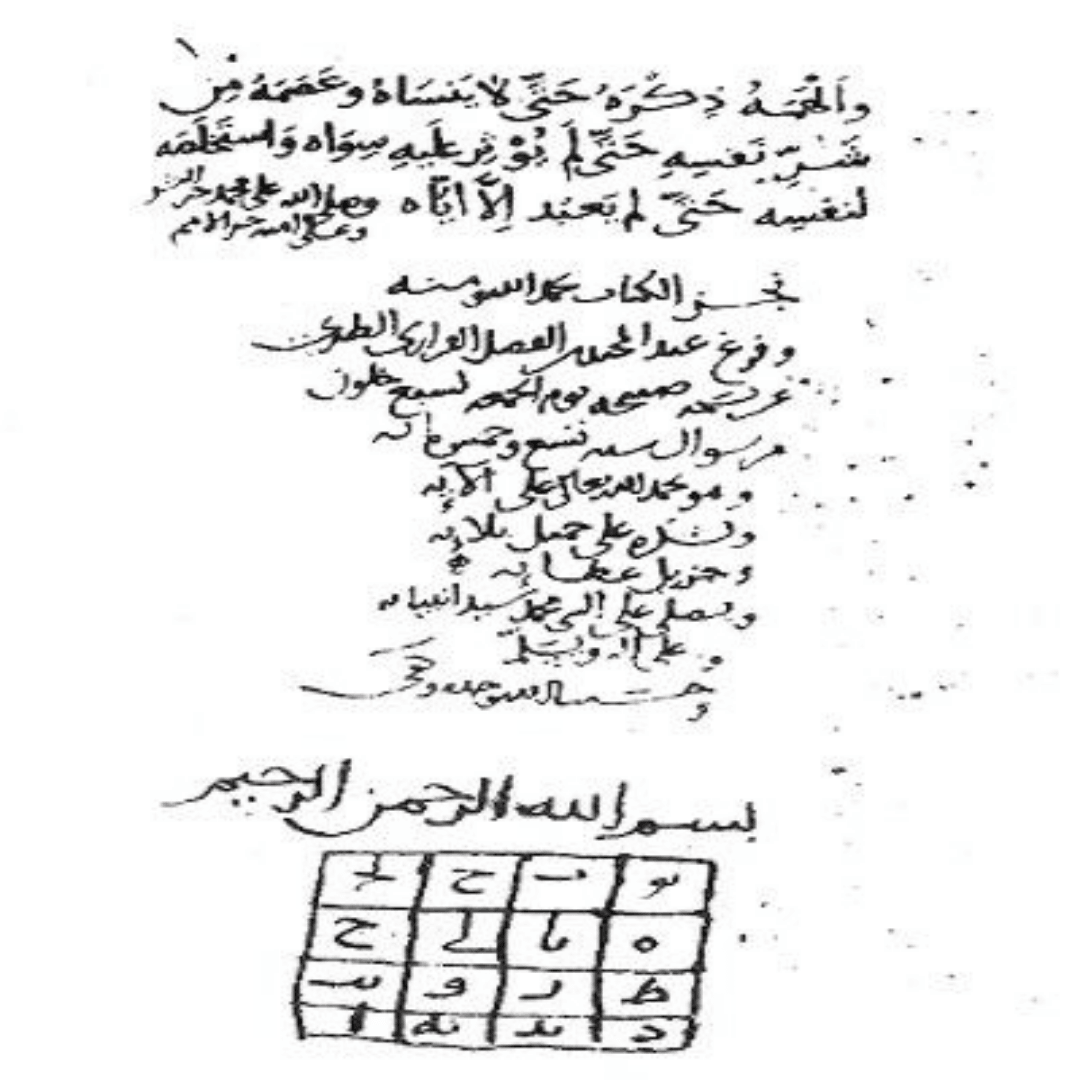 وَأَلْهَمَهُ ذِكْرَهُ حَتَّى لا يَنسَاهُ وعَصَمَهُ مِن
شَرِّ نَفسِهِ حَتَّى لَم يُؤْثِر عَلَيهِ سِوَاه وَاستَخلَصَه
لنفسِه حَتَّى لم يَعبُد إِلَّا ايَّاه وصلى الله على محمد خير البشر
وعلى امته خير الامم
نجز الكتاب بحمد الله ومنه
وفرغ عبد الفضل الطبري
صبيحه يوم الجمعه لسبع خلون
من شوال سنه تسع وخمس مائه
وهو يحمد الله تعالى على آلائه
ويشكره على جميل بلائه
وجزيل عطائه
ويصلي على النبي محمد سيد انبيائه
وعلى آله ويسلم
وحسبنا الله وحده وكفى
بسم الله الرحمن الرحيم
يو ب ج
ه يا ي ح
ط ز و يب
د يد يه ا